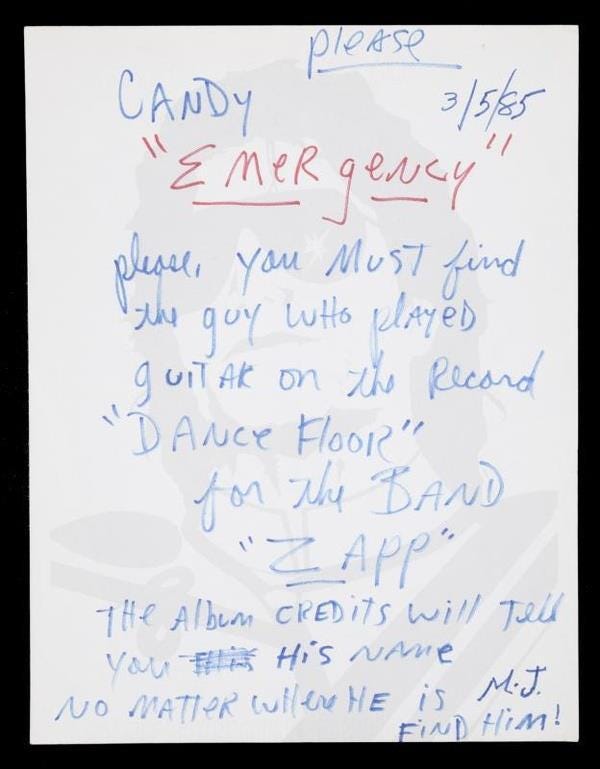 please
CANDY 3/5/85
"EMeRgeNcy"
please, you MUST find
the guy WHo plAYeD
guiTAR on the Record
"DANce FlooR"
for the BAND
"ZApp"
THe Album CREDiTs will Tell
you His NAMe
NO MATTeR wHere HE is M.J.
FiND Him!